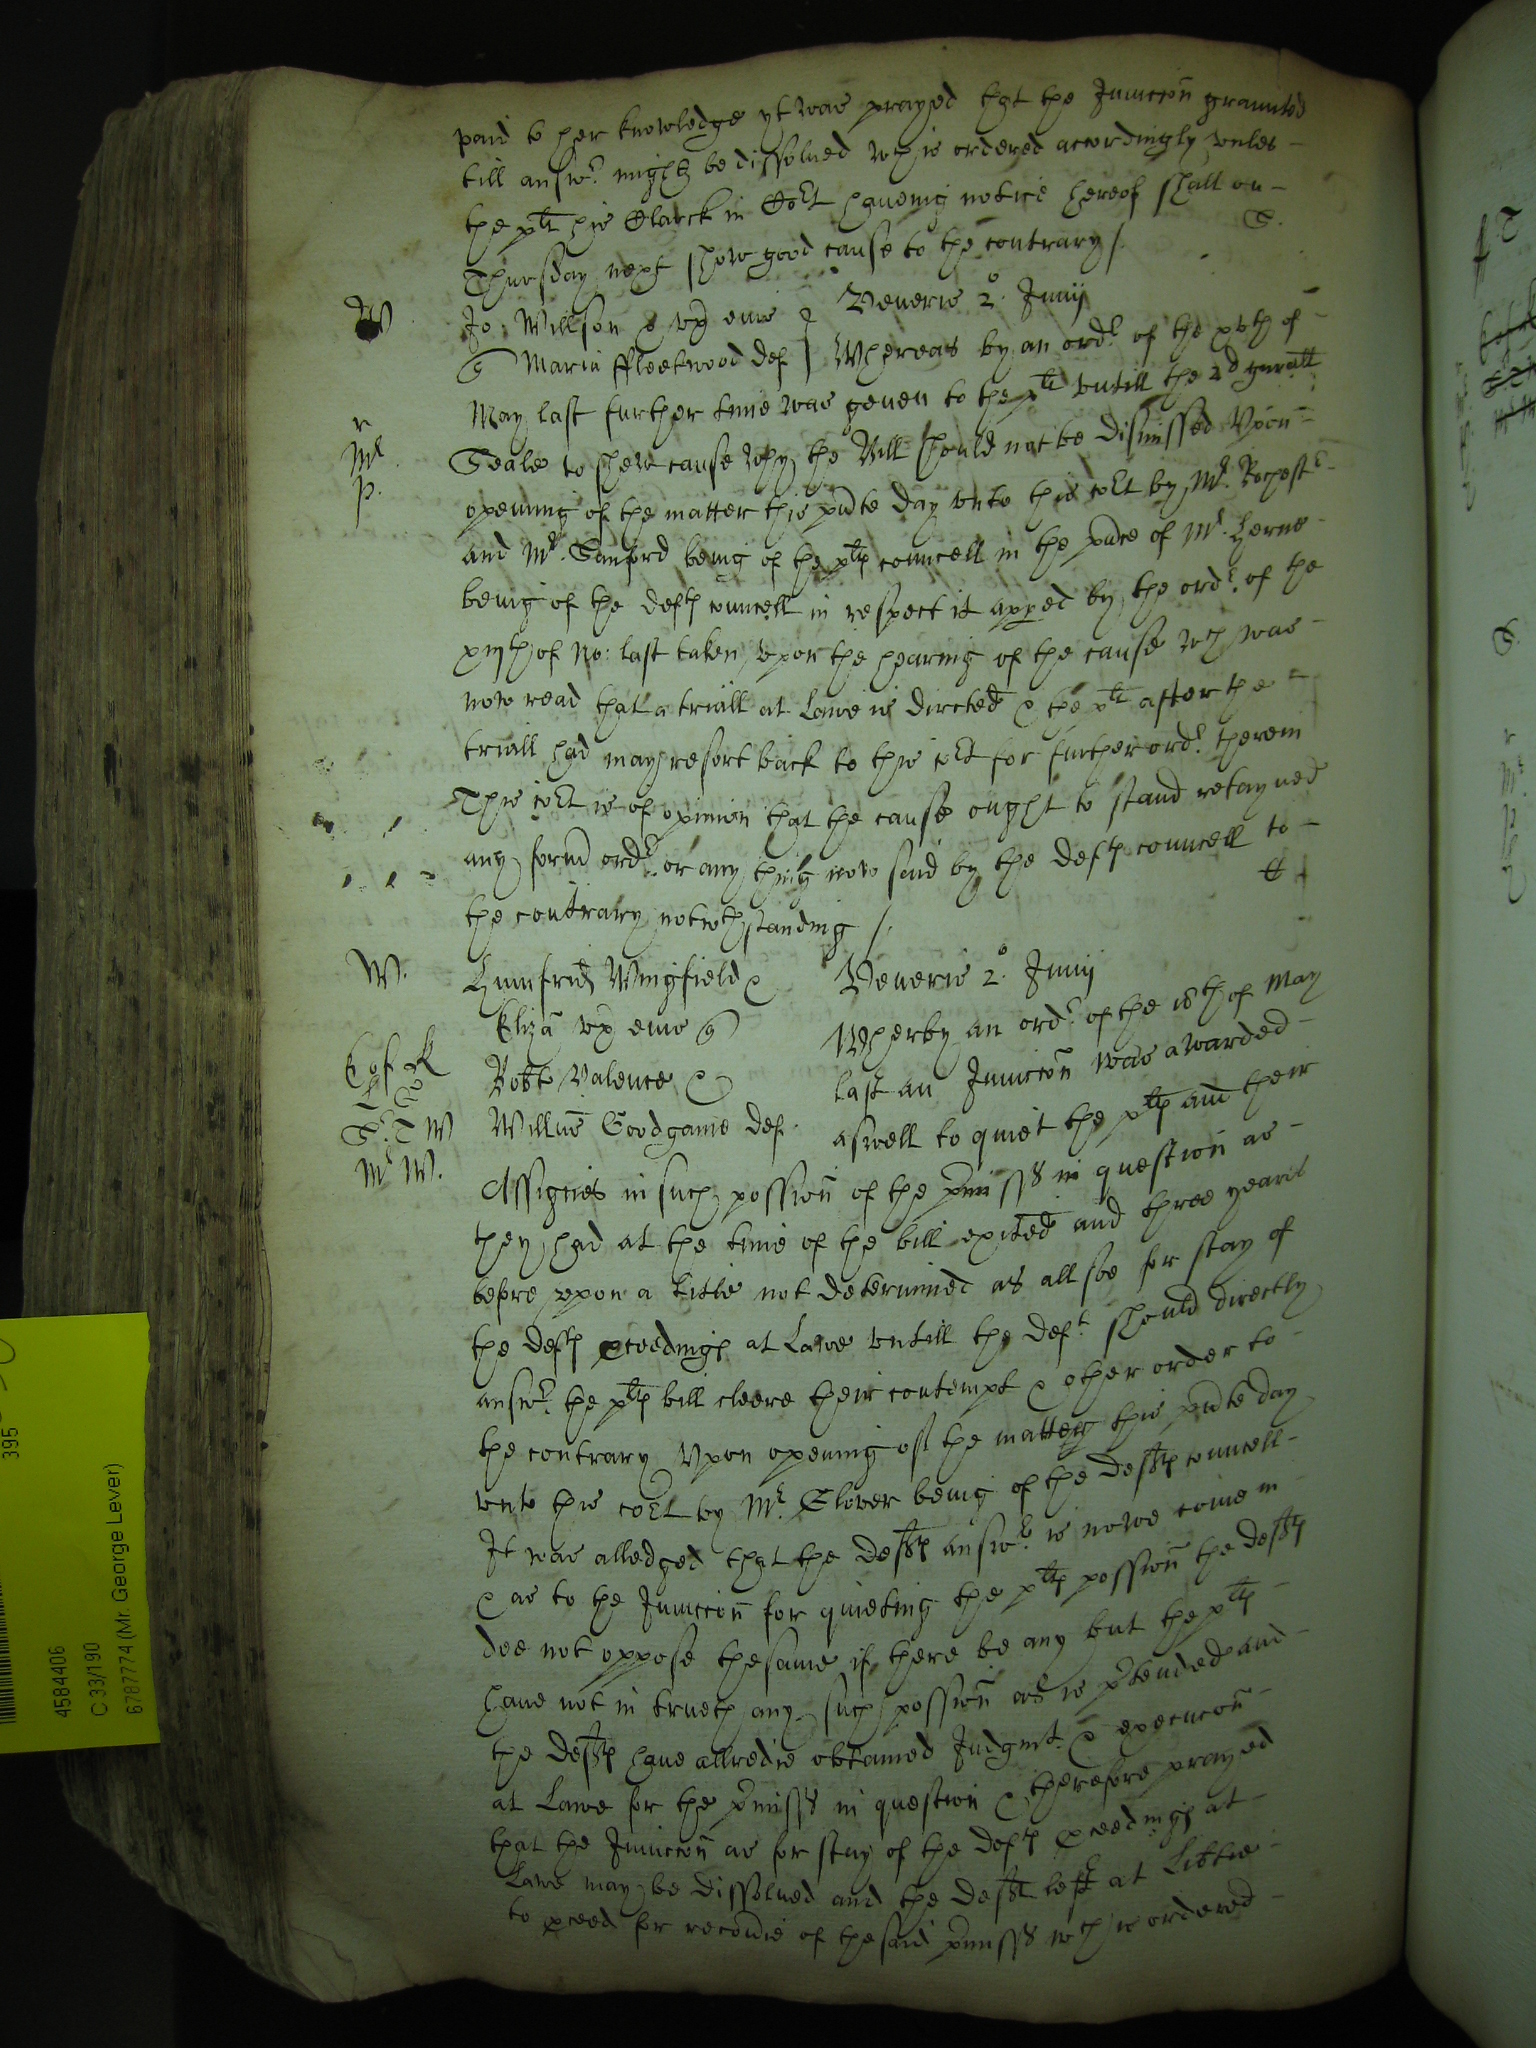 paid to her knowledge yt was prayed that the Iniuccon graunted
till answr. might be dissolued wch is ordered accordingly vnles
the plt his Clarck in Cort haueing notice hereof shall on
Thursday next shew good cause to the contrary /.
S.
W
Jo: Willson & vx eius q
Maria ffleetwood def
Veneris 2o. Junij
Whereas by an ordr. of the xvth of
May last further time was geuen to the plt vntill the 2d gnrall
r
Mr.
P.
Seale to shew cause why the Bill should not be dismissed Vpon
opening of the matter this pnte day vnto this cort by Mr. Rochestr
and Mr. Sanford being of the pltes councell in the pnce of Mr. Herne
being of the deftes councell in respect it apped by the ordr. of the
xiijth of No: last taken vpon the hearing of the cause wch was
now read that a triall at Lawe is directed & the plt after the
triall had may resort back to this cort for further ordr. therein
This cort is of opinion that the cause ought to stand retayned
any formr ordr. or any thing now said by the deftes councell to
the contrary notwthstanding /.
W.
Humfrid Wingfield &
Eliza vx eius q
Robt Valence &
Willus Goodgame def.
Veneris 2o. Junij
Wherby an ordr. of the 18th of May
last an Iniuccon was awarded
aswell to quiet the pltes and their
Mr W.
Assignes in such possion of the pmisses in question as
they had at the time of the bill exited and three yeares
before vpon a title not determined as allsoe for stay of
the deftes pceedinges at Lawe vntill the deft. should directly
answr. the pltes bill cleere their contempt & other order to
the contrary Vpon opening of the matter this pnte day
vnto this cort by Mr. Glover being of the deftes councell
It was alledged that the deftes answr. is nowe come in
& as to the Iniuccon for quieting the pltes possion the deftes
doe not oppose thesame if there be any but the pltes
haue not in trueth any such possion as is ptended and
the deftes haue allredie obtained Iudgmt. & execucon
at Lawe for the pmisses in question & therefore prayed
that the Iniuccon as for stay of the deftes pceedinges at
Lawe may be dissolued and the deftes left at Libtie
to pceed for recouie of thesaid pmisses wch is ordered
4584406
C 33/190
6787774 (Mr. George Lever)
395